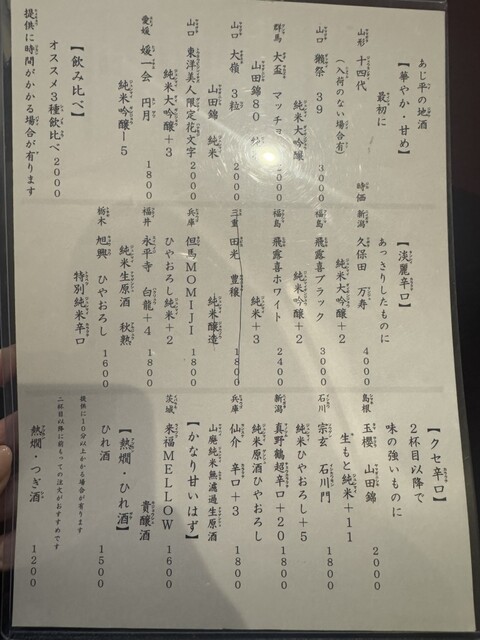 あじ平の地酒
【華やか・甘め】
最初に
山形 十四代 時価
(入荷のない場合有)
山口 獺祭 39 3000
純米大吟醸
群馬 大盃 マッチョ 2000
山田錦80
山口 大嶺 3粒 2000
山田錦 純米
山口 東洋美人限定花文字 2000
純米大吟醸+3
愛媛 媛一会 円月 1800
純米吟醸-5
【飲み比べ】
オススメ3種飲比べ 2000
提供に時間がかかる場合が有ります
【淡麗辛口】
あっさりしたものに
新潟 久保田 万寿 4000
純米大吟醸+2
福島 飛露喜ブラック 3000
純米吟醸+2
福島 飛露喜ホワイト 2400
純米+3
三重 田光 豊穣 1800
純米醸造
兵庫 但馬MOMIJI 1800
ひやおろし純米+2
福井 永平寺 白龍+4 1800
純米生原酒 秋熟
栃木 旭興 ひやおろし 1600
特別純米辛口
【クセ辛口】
2杯目以降で
味の強いものに
島根 玉櫻 山田錦 2000
生もと純米+11
石川 宗玄 石川門 1800
純米ひやおろし+5
新潟 真野鶴超辛口+20 1800
純米原酒ひやおろし
兵庫 仙介 辛口+3 1800
山廃純米無濾過生原酒
【かなり甘いはず】
茨城 来福MELLOW 1600
貴醸酒
【熱燗・ひれ酒】
ひれ酒 1500
提供に10分以上かかる場合が有ります
二杯目以降に前もっての注文がおすすめです
熱燗・つぎ酒 1200